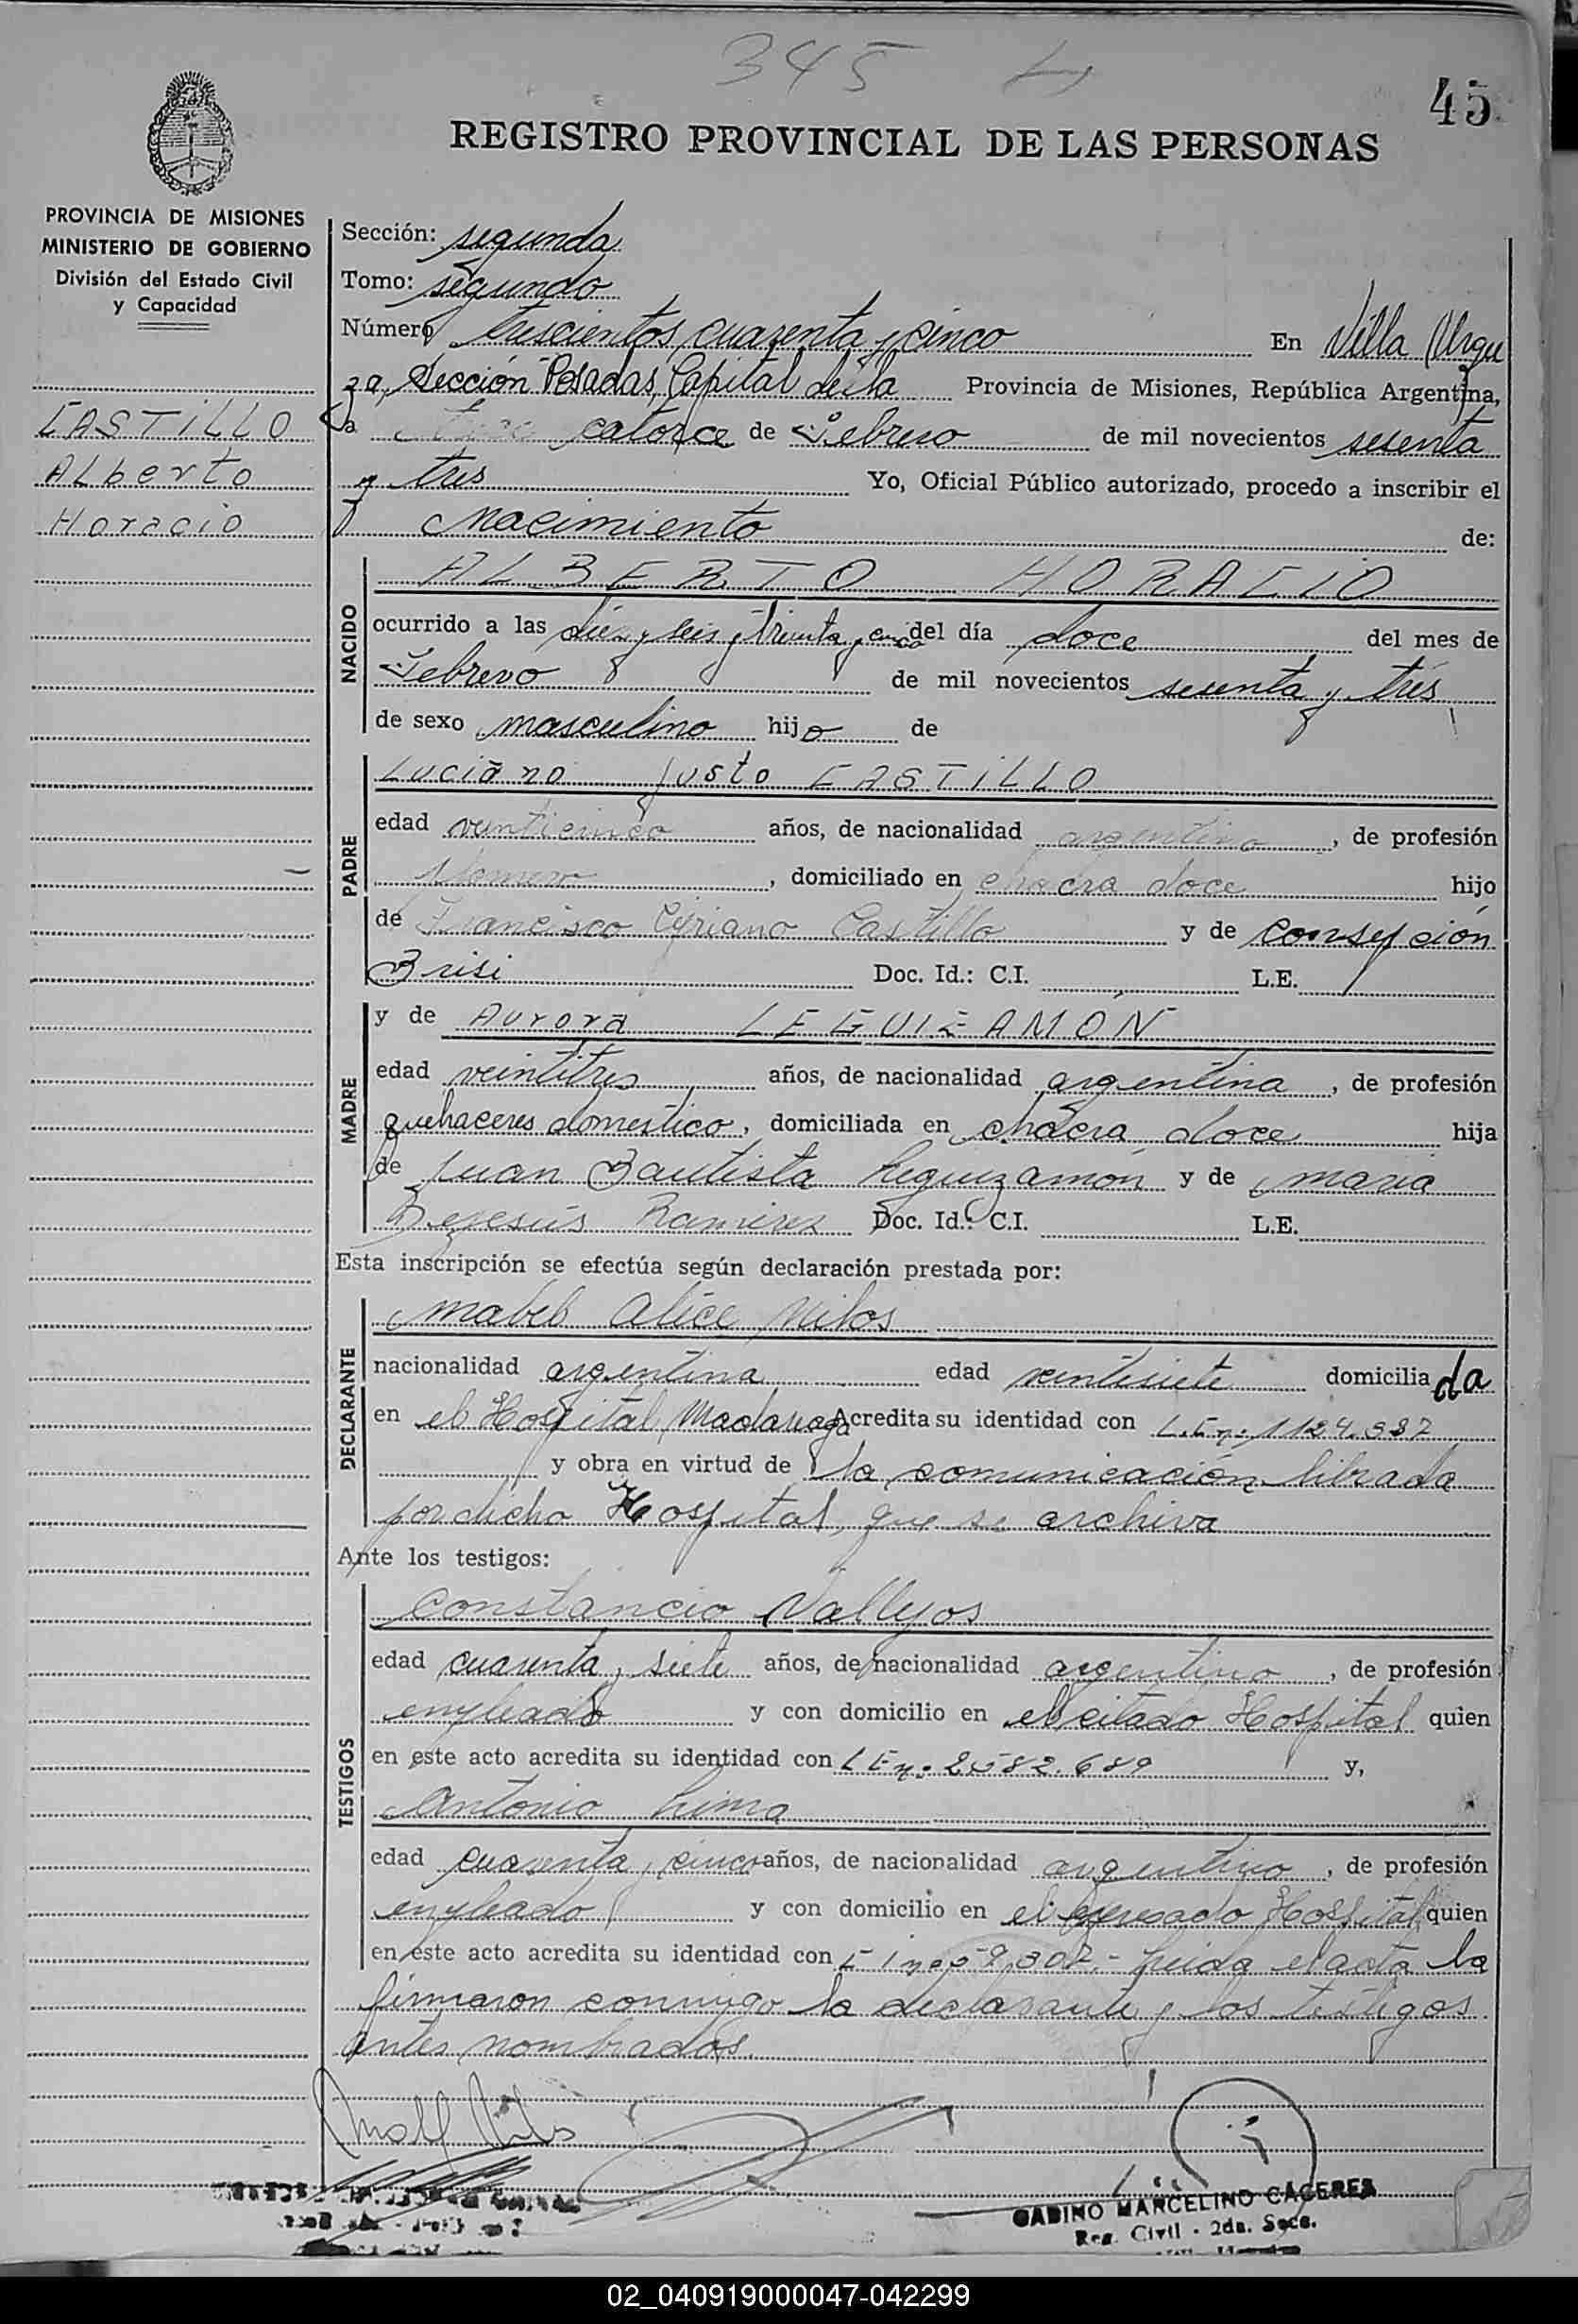 345
45
REGISTRO PROVINCIAL DE LAS PERSONAS
PROVINCIA DE MISIONES
MINISTERIO DE GOBIERNO
División del Estado Civil
y Capacidad
CASTILLO
Alberto
Horacio
Sección: segunda
Tomo: segundo
Número trescientos cuarenta y cinco En Villa Urqui
za, Sección Posadas, Capital de la Provincia de Misiones, República Argentina,
a catorce de Febrero de mil novecientos sesenta
y tres Yo, Oficial Público autorizado, procedo a inscribir el
Nacimiento de:
NACIDO
ALBERTO HORACIO
ocurrido a las diez y seis y treinta y cinco del día doce del mes de
Febrero de mil novecientos sesenta y tres
de sexo masculino hijo de
PADRE
Luciano Justo CASTILLO
edad veinticinco años, de nacionalidad argentino, de profesión
, domiciliado en chacra doce hijo
de Francisco Cipriano Castillo y de Consepción
Brisi Doc. Id.: C.I. L.E.
MADRE
y de Aurora LEGUIZAMÓN
edad veintitres años, de nacionalidad argentina, de profesión
quehaceres domestico, domiciliada en chacra doce hija
de Juan Bautista Leguizamón y de maria
Dejesús Ramirez Doc. Id.: C.I. L.E.
Esta inscripción se efectúa según declaración prestada por:
DECLARANTE
Mabel Alice Milos
nacionalidad argentina edad veintisiete domiciliada
en el Hospital Madariaga Acredita su identidad con
y obra en virtud de la comunicación librada
por dicho Hospital, que se archiva
Ante los testigos:
TESTIGOS
Constancio Vallejos
edad cuarenta y siete años, de nacionalidad argentino, de profesión
empleado y con domicilio en el citado Hospital quien
en este acto acredita su identidad con L E nº 2.582.689 y,
Antonio Lima
edad cuarenta y cinco años, de nacionalidad argentino, de profesión
empleado y con domicilio en el expresado Hospital quien
en este acto acredita su identidad con Leida el acta la
firmaron conmigo la declarante y los testigos
antes nombrados.
GABINO MARCELINO CACERES
Reg. Civil - 2da. Secc.
02_040919000047-042299